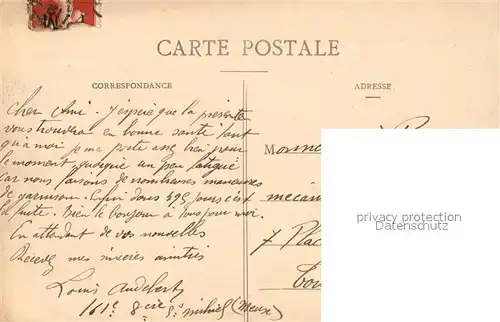 CARTE POSTALE
CORRESPONDANCE
ADRESSE
Cher Ami. J'espère que la présente
vous trouvera en bonne santé tant
qu'à moi je me porte assez bien pour
le moment quoique un peu fatigué
car nous faisons de nombreuses manœuvres
de garnison. Enfin dans 595 jours c'est
la fuite. Bien le bonjour à tous pour moi.
En attendant de vos nouvelles
Recevez mes sincères amitiés
Louis Audebert
161e 8e Cie St Mihiel (Meuse)
Mon
mécan
7 Plac
privacy protection
Datenschutz